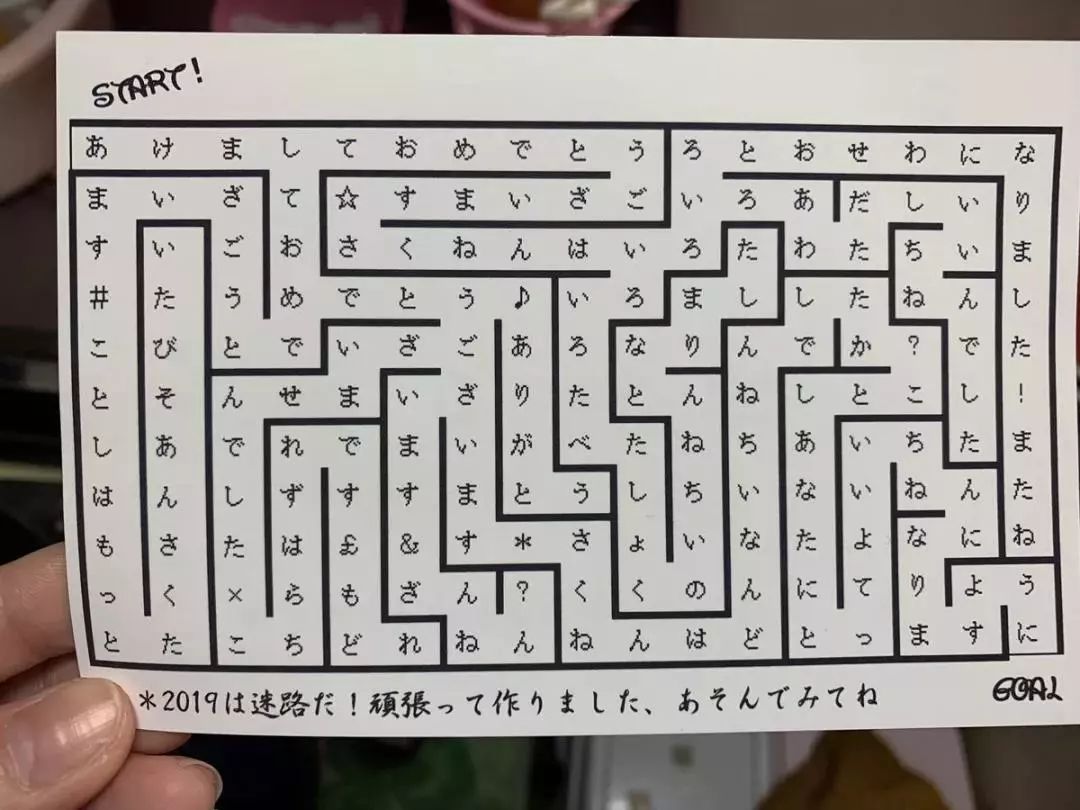 START!
あけましておめでとうろとおせわにな
まいざて☆すまいざごいろあだしいり
すいごおさくねんはいろたわたちいま
#たうめでとう♪いろまししたねんし
こびとでいざごあろなりんでか?でた
とそんせまいざりたとんねしとこし!
しあでれでまいがべたねちあいちたま
はんしずすすまとうしちいないねんた
もさたは£&す*さょいなたよなにね
っく×らもざん?くくのんにてりよう
とたこちどれねんねんはどとっますに
GOAL
*2019は迷路だ!頑張って作りました、あそんでみてね